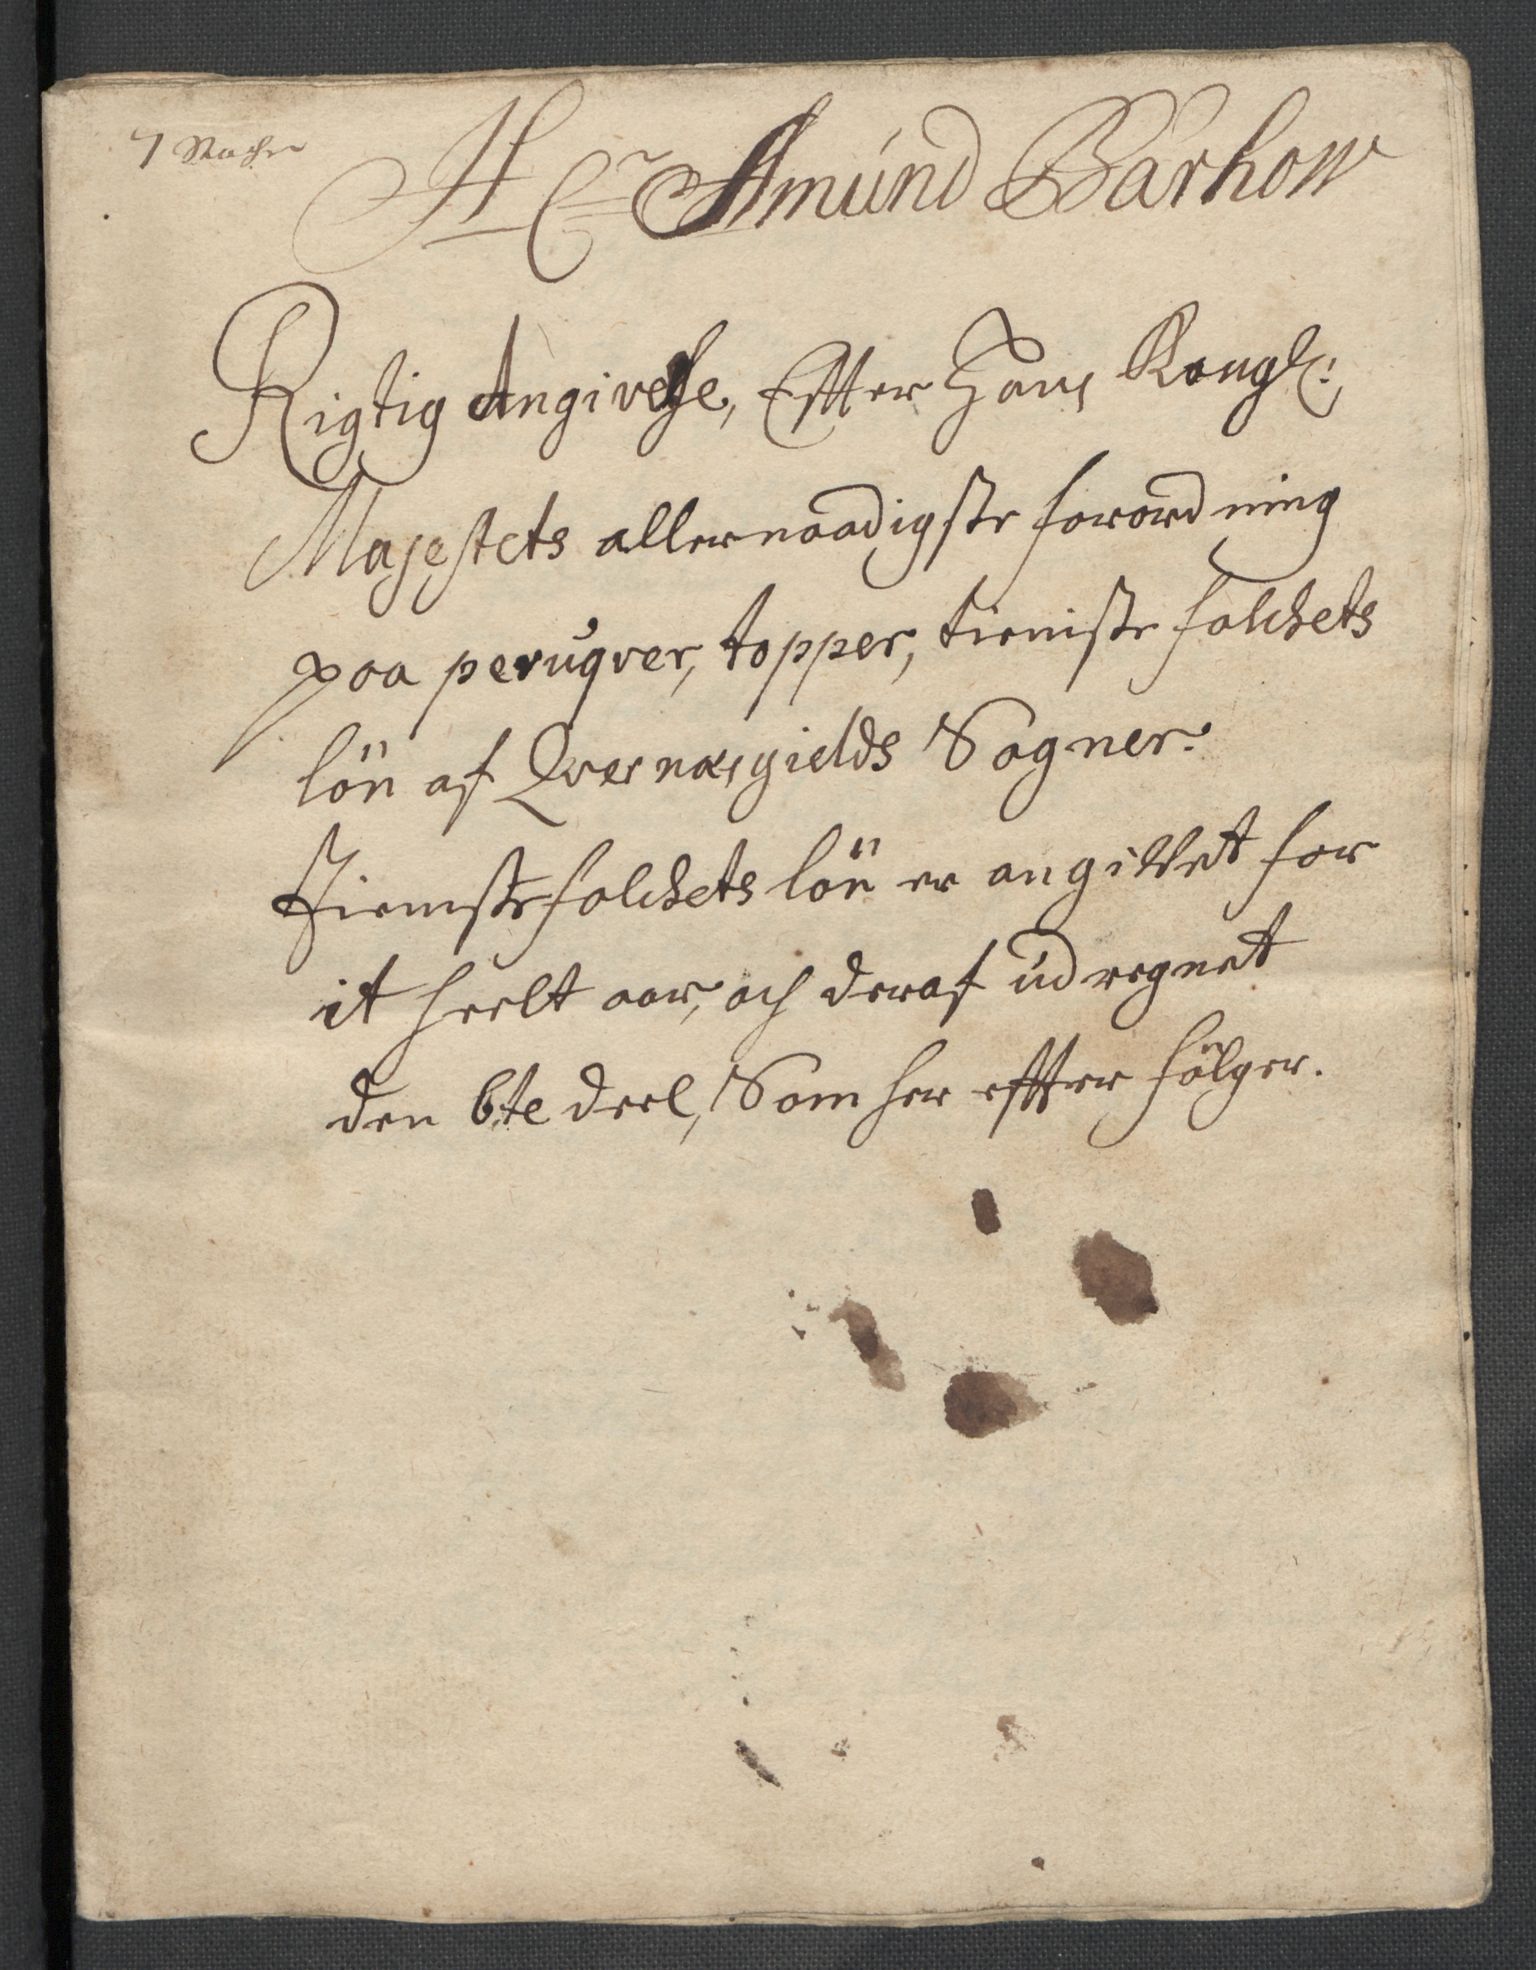 7
Hr Amund Barhow
Rigtig Angivelse, Effter Hans Kongl:
Majestets allernaadigste forordning
paa peruqver, topper, tieniste folchets
lön af Qvernæs gields Sogner.
Tienistefolchets lön er angivet for
it heelt aar, och deraf udregnet
den 6te deel, Som her effter fölger.